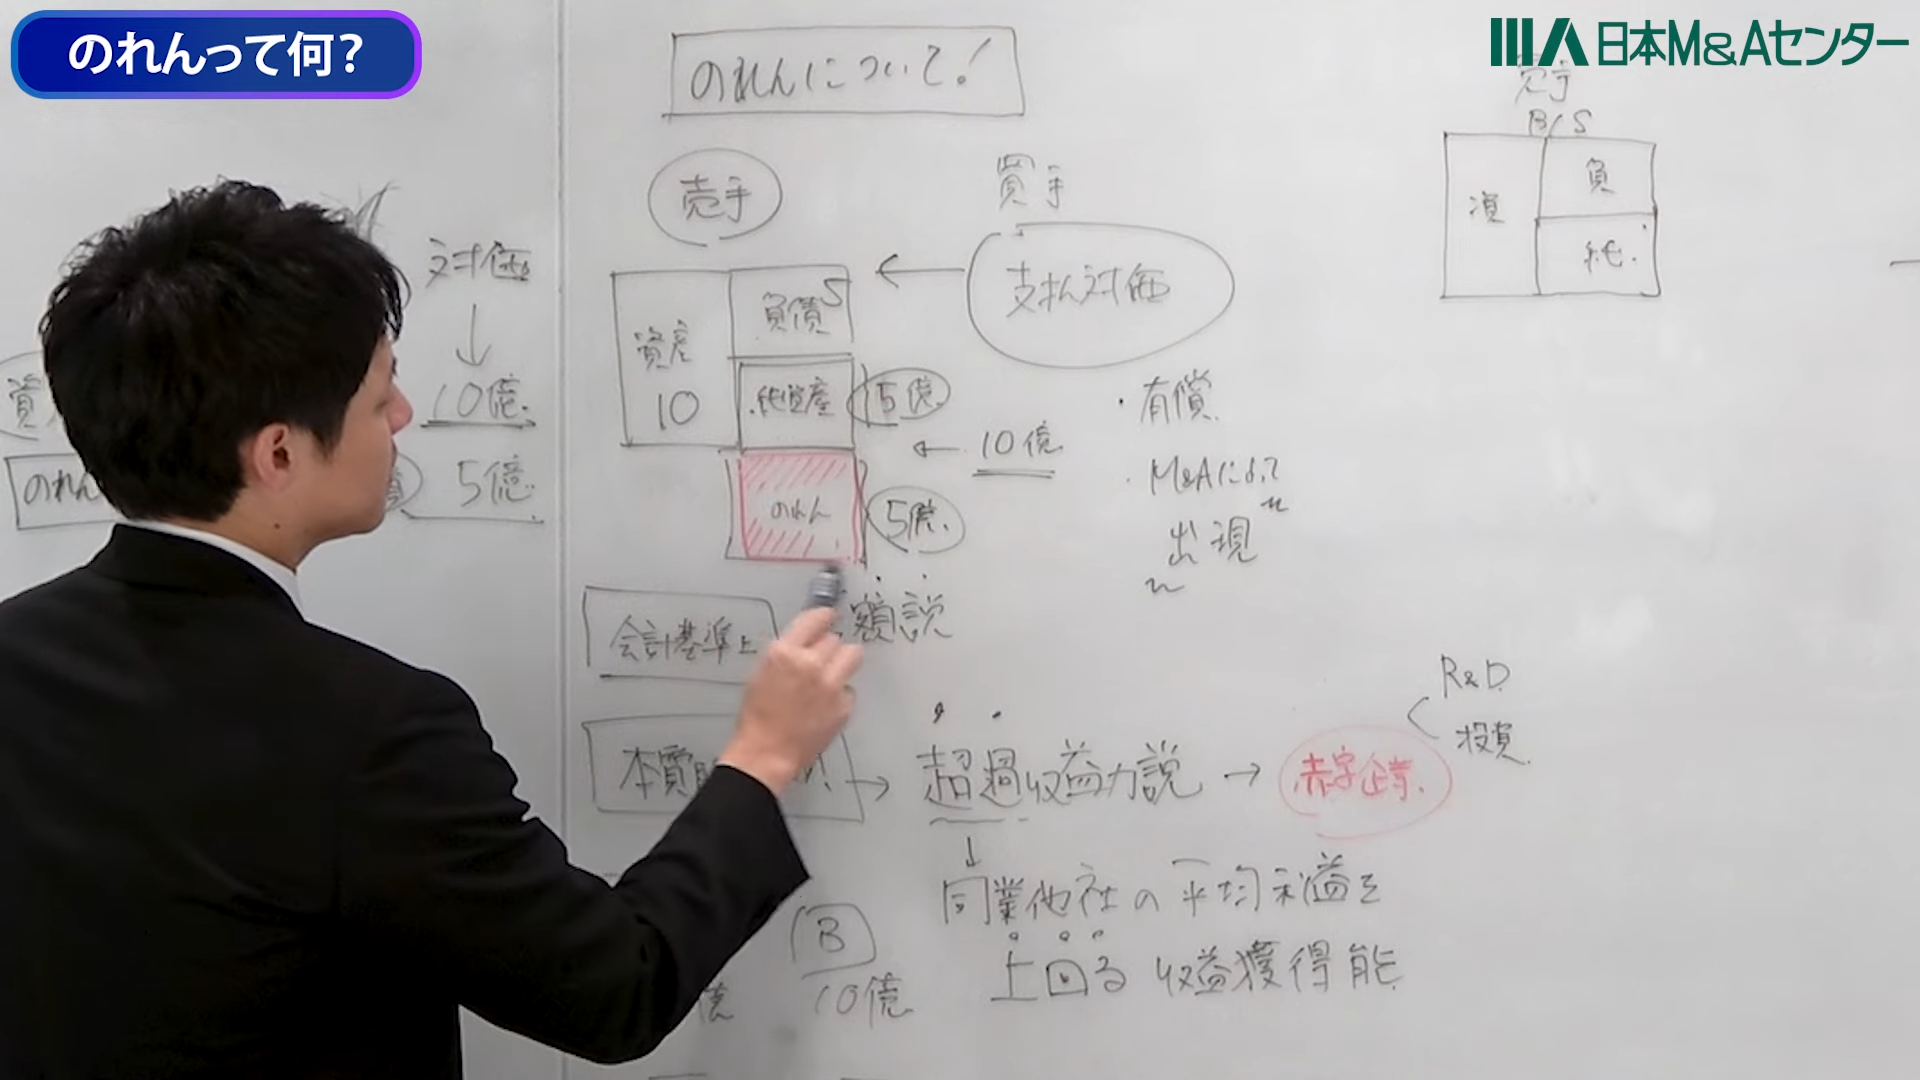 のれんって何？
日本M&Aセンター
のれんについて！
売手
買手
支払対価
資産
10
負債5
純資産
5億
10億
のれん
5億
有償
M&Aによって
出現
売手
B/S
資
負
純
対価
10億
のれん
5億
会計基準上
額説
本質
超過収益力説
赤字企業
R&D
投資
同業他社の平均利益を
上回る収益獲得能
B
10億
億